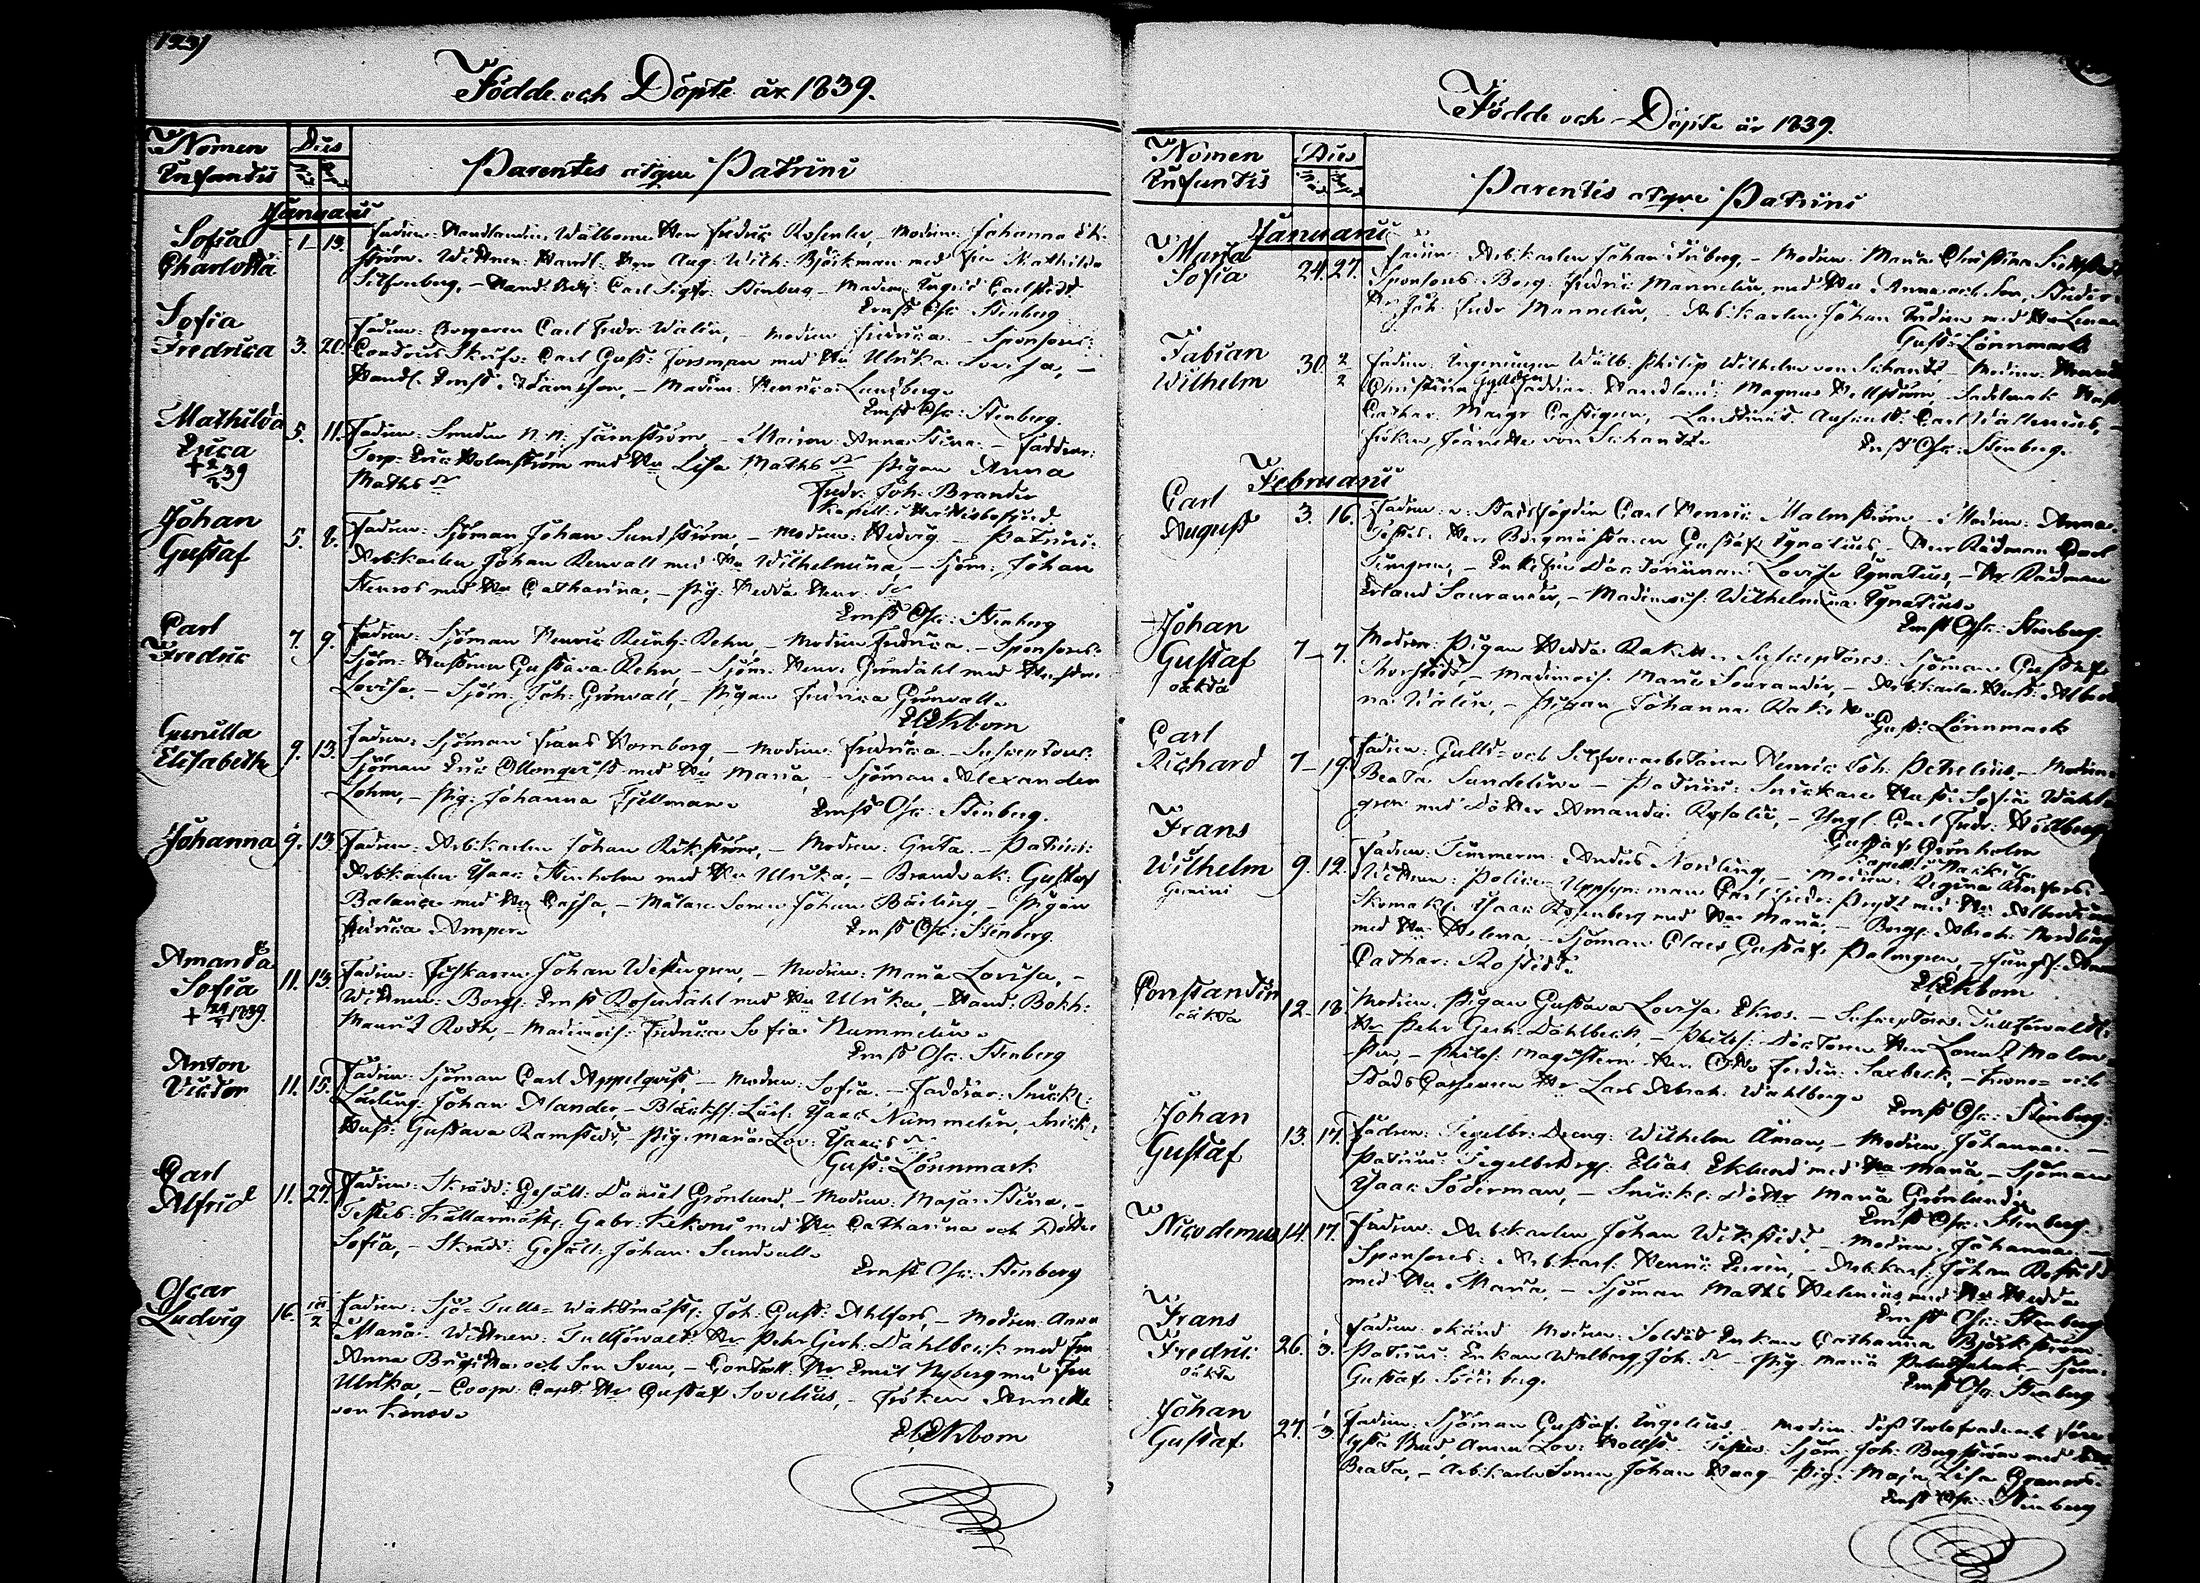 Födde och Döpte år 1839.
Nomen Dies
Infantis
Parentes atque Patrini
Januarii
Sofia Charlotta 1. 13. Fadren: Handlanden Wälborne Herr Fredric Rosenlew, — Modren: Johanna Ek-
ström. Wittnen: Handl: Herr Aug: Wilh: Björkman med Fru Mathilda
Silfverberg, — Handl: Carl Sigfr: Stenberg — Madem: Ingrid Carlstedt.
Ernst Osc: Stenberg.
Sofia Fredrica 3. 20. Fadren: Borgaren Carl Fredr: Walin, — Modren: Fredrica. — Sponsores:
Conduct: Skräfv: Carl Gust: Forsman med Hu Ulrika Lovisa, —
Handl: Ernst Adamsson, — Madem: Henrica Lundberg.
Ernst Osc: Stenberg.
Mathilda Erica 5. 11. Fadren: Smeden N.N. Färnström, — Modren: Anna Stina. — Faddrar:
+ 2/2 39
Torp: Eric Holmström med Hu Lisa Maths dr Pigan Anna
Maths dr
Fredr: Joh: Brander
Kapell: i Hvittisbofjerd
Johan Gustaf 5. 8. Fadren: Sjöman Johan Sundström, — Modren: Hedvig — Patrini:
Arb:karlen Johan Renvall med Hu Wilhelmina, — Sjöm: Johan
Stenros med Hu Catharina, — Pig: Hedda Henr: dr
Ernst Osc: Stenberg
Carl Fredric 7. 9. Fadren: Sjöman Henric Reinh: Rehn, — Modren: Fredrica. — Sponsores:
Sjöm: Hustrun Gustava Rehn, — Sjöm: Henr: Gröndahl med Hustru
Lovisa, — Sjöm: Joh: Grönvall, — Pigan Fredrica Grönvall.
Ekbom
Gunilla Elisabeth 9. 13. Fadren: Sjöman Frans Hornborg, — Modren: Fredrica. — Susceptores:
Sjöman Eric Ollonqvist med Hu Maria, — Sjöman Alexander
Lohm, — Pig: Johanna Fjellman.
Ernst Osc: Stenberg.
Johanna 9. 13. Fadren: Arb:karlen Johan Rikström, — Modren: Greta. — Patrini:
Arb:karlen Isaac Stenholm med Hu Ulrika, — Brandvak: Gustaf
Balance med Hu Cajsa, — Målare Sonen Johan Bärling, — Pigan
Fredrica Amper.
Ernst Osc: Stenberg
Amanda Sofia 11. 13. Fadren: Fiskaren Johan Westergren, — Modren: Maria Lovisa, —
+ 1839.
Wittnen: Borg: Ernst Rosendahl med Hu Ulrika, — Hand: Bokh:
Mauritz Roth, — Mademois: Fredrica Sofia Nummelin.
Ernst Osc: Stenberg
Anton Victor 11. 15. Fadren: Sjöman Carl Appelqvist — Modren: Sofia. — Faddrar: Snick:
Lärling: Johan Alander, — Bläcksl: Lärl: Isaac Nummelin, Snick:
Hust: Gustava Ramstedt, — Pig: Maria Lov: Isaacs dr
Gust: Lönnmark
Carl Alfred 11. 27. Fadren: Skrädd: Gesäll: Daniel Grönlund, — Modren: Maja Stina, —
Testes: Källarmäst: Gabr: Kekoni med Hu Catharina och Dotter
Sofia, — Skrädd: Gesäll: Johan Sundvall.
Ernst Osc: Stenberg
Oscar Ludvig 16. Fadren: Sjö-Tulls-Waktmäst: Joh: Gust: Ahlfors, — Modren: Anna
Maria. Wittnen: Tullförwalt: Hr Pehr Gerh: Dahlbeck med Fru
Anna Brigitta och Son Sven, — Controll: Hr Emil Nyberg med Fru
Ulrika, — Coopv: Capt: Hr Gustaf Sovelius, — Fröken Annette
von Konow.
Ekbom
Födde och Döpte år 1839.
Nomen Dies
Infantis
Parentes atque Patrini
Januarii
Maria Sofia 24. 27. Fadren: Arb:karlen Johan Sjöberg, — Modren: Maria Christina
Sponsores: Borg: Fredric Mannelin med Hu Anna och Son, Studer:
Hr Joh: Fredr Mannelin, — Arb:karlen Johan med Hu Lena
Gust: Lönnmark
Fabian Wilhelm 30. 2/2 Fadren: Ingenieuren Wälb. Philip Wilhelm von Schantz — Modren:
Christina Faddrar: Handland: Magnus Hellström, Sadelmak:
Cathar: Margr Castegren, — Landtmät: Auscult: Carl Wallenius, —
Fröken Jeanette von Schantz.
Ernst Osc: Stenberg.
Februarii
Carl August 3. 16. Fadren: Stadsfogden Carl Henric Malmström — Modren: Anna.
Testes: Herr Borgmästaren Gustaf Ignatius, — Herr Rådman Carl
— Enkefru Doctorinnan Lovisa Ignatius, — Hr Rådman
Erland Sourander, — Mademois: Wilhelmina Ignatius.
Ernst Osc: Stenberg.
Johan Gustaf 7. 7. Modren: Pigan Hedda Rakett. Susceptores: Sjöman Gustaf
oäkta
— Mademois: Maria Sourander, — Arb:karls Hust:
na Walin, — Pigan Johanna Rakett.
Gust: Lönnmark
Carl Richard 7. 19. Fadren: Guld- och Silfverarbetaren Henric Joh: Pettelius, — Modren:
Beata Sundelin. — Patrini: Snickare Hust: Sofia Wahl-
gren med Dotter Amanda Rosalie, — Yngl: Carl Fredr:
Gustaf Grönholm
Frans Wilhelm 9. 12. Fadren: Timmerm: Anders Nordling, — Modren: Regina
Gemini
Wittnen: Police Uppsyn:man Carl Fredr: med Hu
Skomak: Isaac Rosenberg med Hu Maria, — Borg: Abrah: Nordling
med Hu Helena, — Sjöman Claes Gustaf Palmgren, — Jungf:
Cathar: Rostedt.
Ekbom
Constandin 12. 18. Modren: Pigan Gustava Lovisa Ekros. — Susceptores: Tullförwalt:
oäkta
Hr Pehr Gerh: Dahlbeck, — Philos: Doctoren Herr Lorentz Malm-
sten, — Philos: Magistern Herr Otto Ferdin: Saxbeck, — Krono- och
Stads Cassören Hr Lars Abrah: Wahlberg.
Ernst Osc: Stenberg.
Johan Gustaf 13. 17. Fadren: Tegelbr: Dreng: Wilhelm Åman, — Modren: Johanna. —
Patrini: Tegelbr:Drg: Elias Eklund med Hu Maria, — Sjöman
Isaac Söderman, — Snick: Dotter Maria Grönlund.
Ernst Osc: Stenberg.
Nicodemus 14. 17. Fadren: Arb:karlen Johan Wikstedt, — Modren: Johanna. —
Sponsores: Arb:karl: Henric — Arb:karl: Johan
med Hu Maria, — Sjöman Maths Helenius med Hu Hedda
Ernst Osc: Stenberg
Frans Fredric 26. 1/3. Fadren: okänd Modren: Soldat Enkan Catharina Björkström
oäkta
Patrini: Enkan Walberg Joh: dr — Pig: Maria — Sjöm:
Gustaf Söderberg.
Ernst Osc: Stenberg
Johan Gustaf 27. 1/3 Fadren: Sjöman Gustaf Ingelius. Modren: dess
Brud, Anna Lov: — Testes: Sjöm: Joh: Bergström med
Beata, — Arb:karls Sonen Johan — Pig: Maja Lisa
Ernst Osc: Stenberg